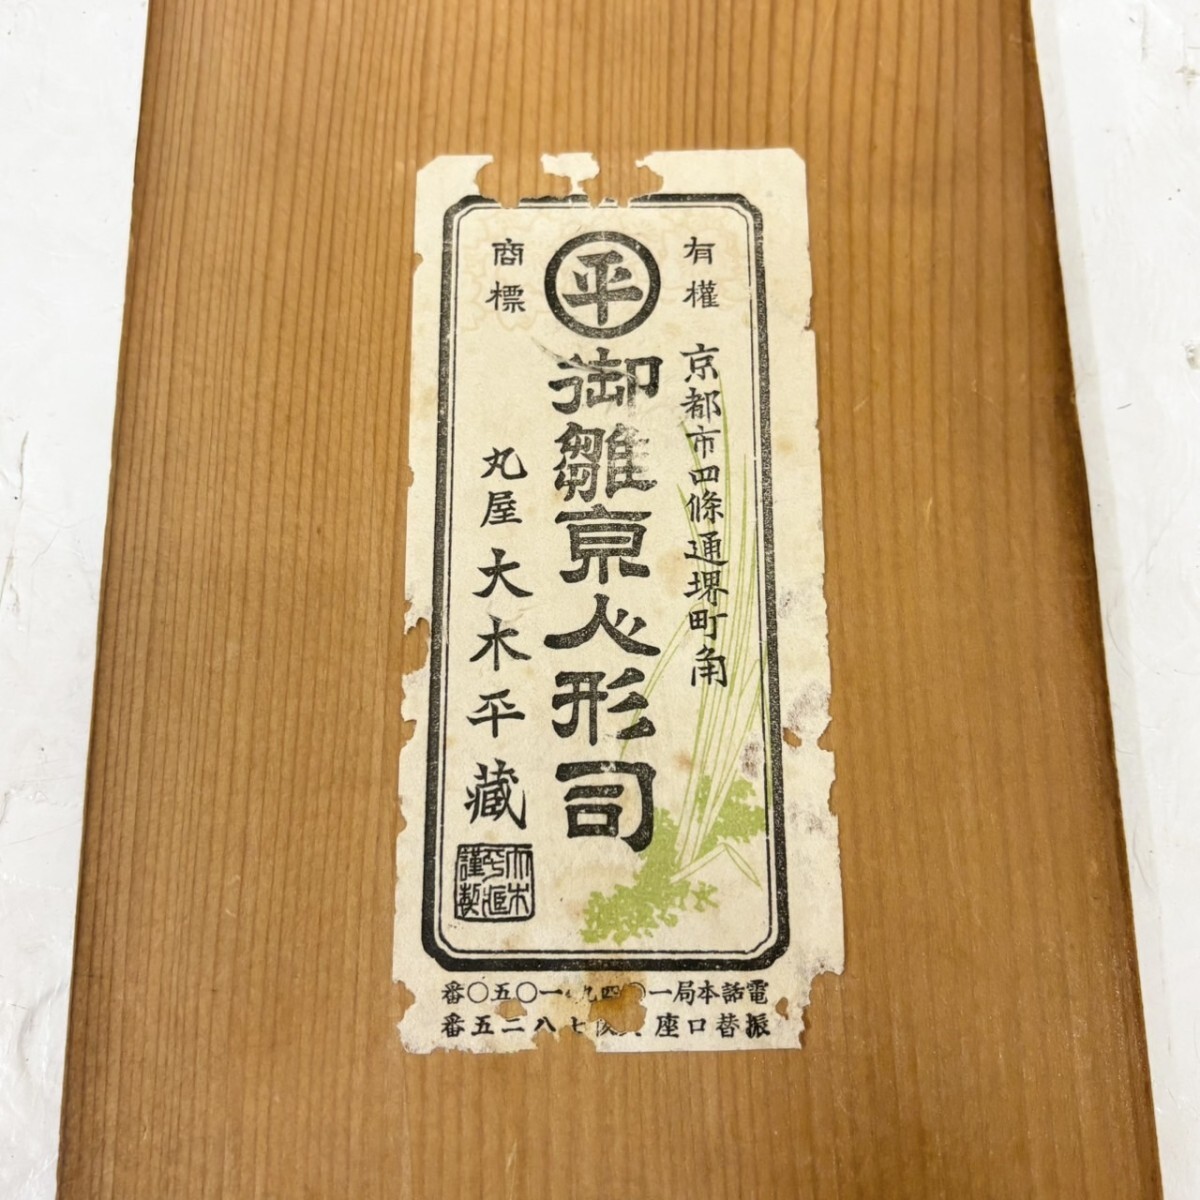 有權
㊥平
商標
京都市四條通堺町角
御雛京人形司
丸屋 大木平藏
大木平藏謹製
電話本局一〇四九・一〇五〇番
振替口座 七八二五番